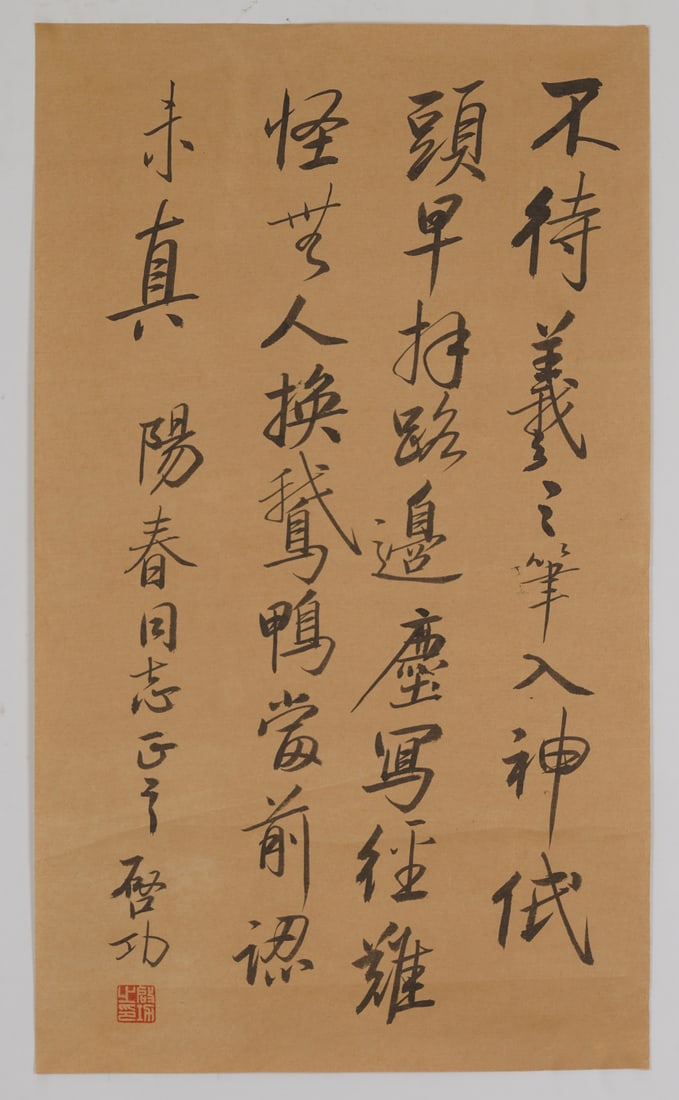 不待羲之筆入神低
頭早拜路邊塵寫經難
怪無人換鵝鴨當前認
未真 陽春同志正 啓功
啓功之印